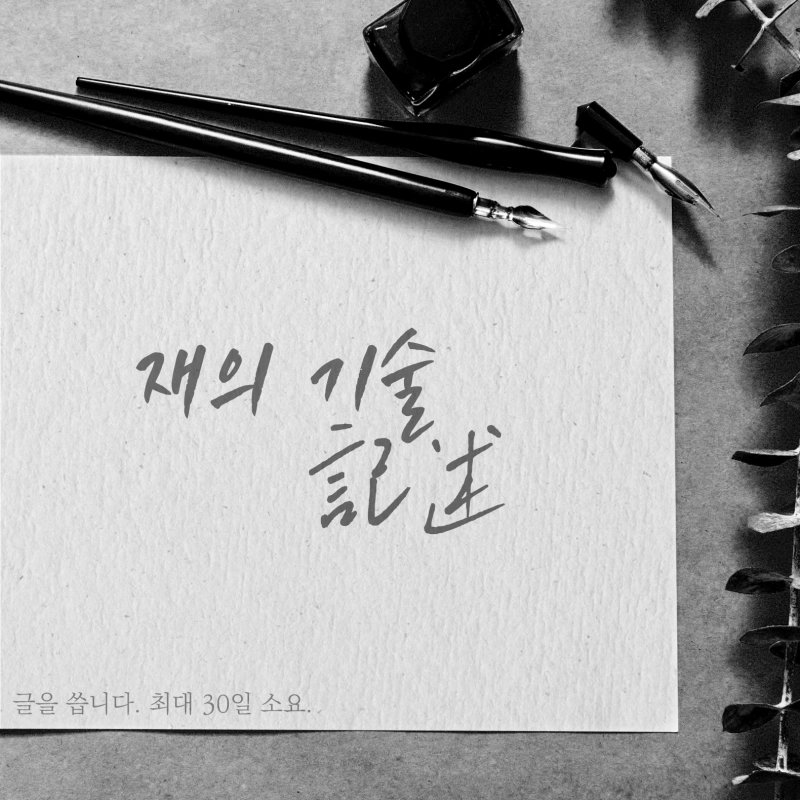 재의 기술
記述
글을 씁니다. 최대 30일 소요.